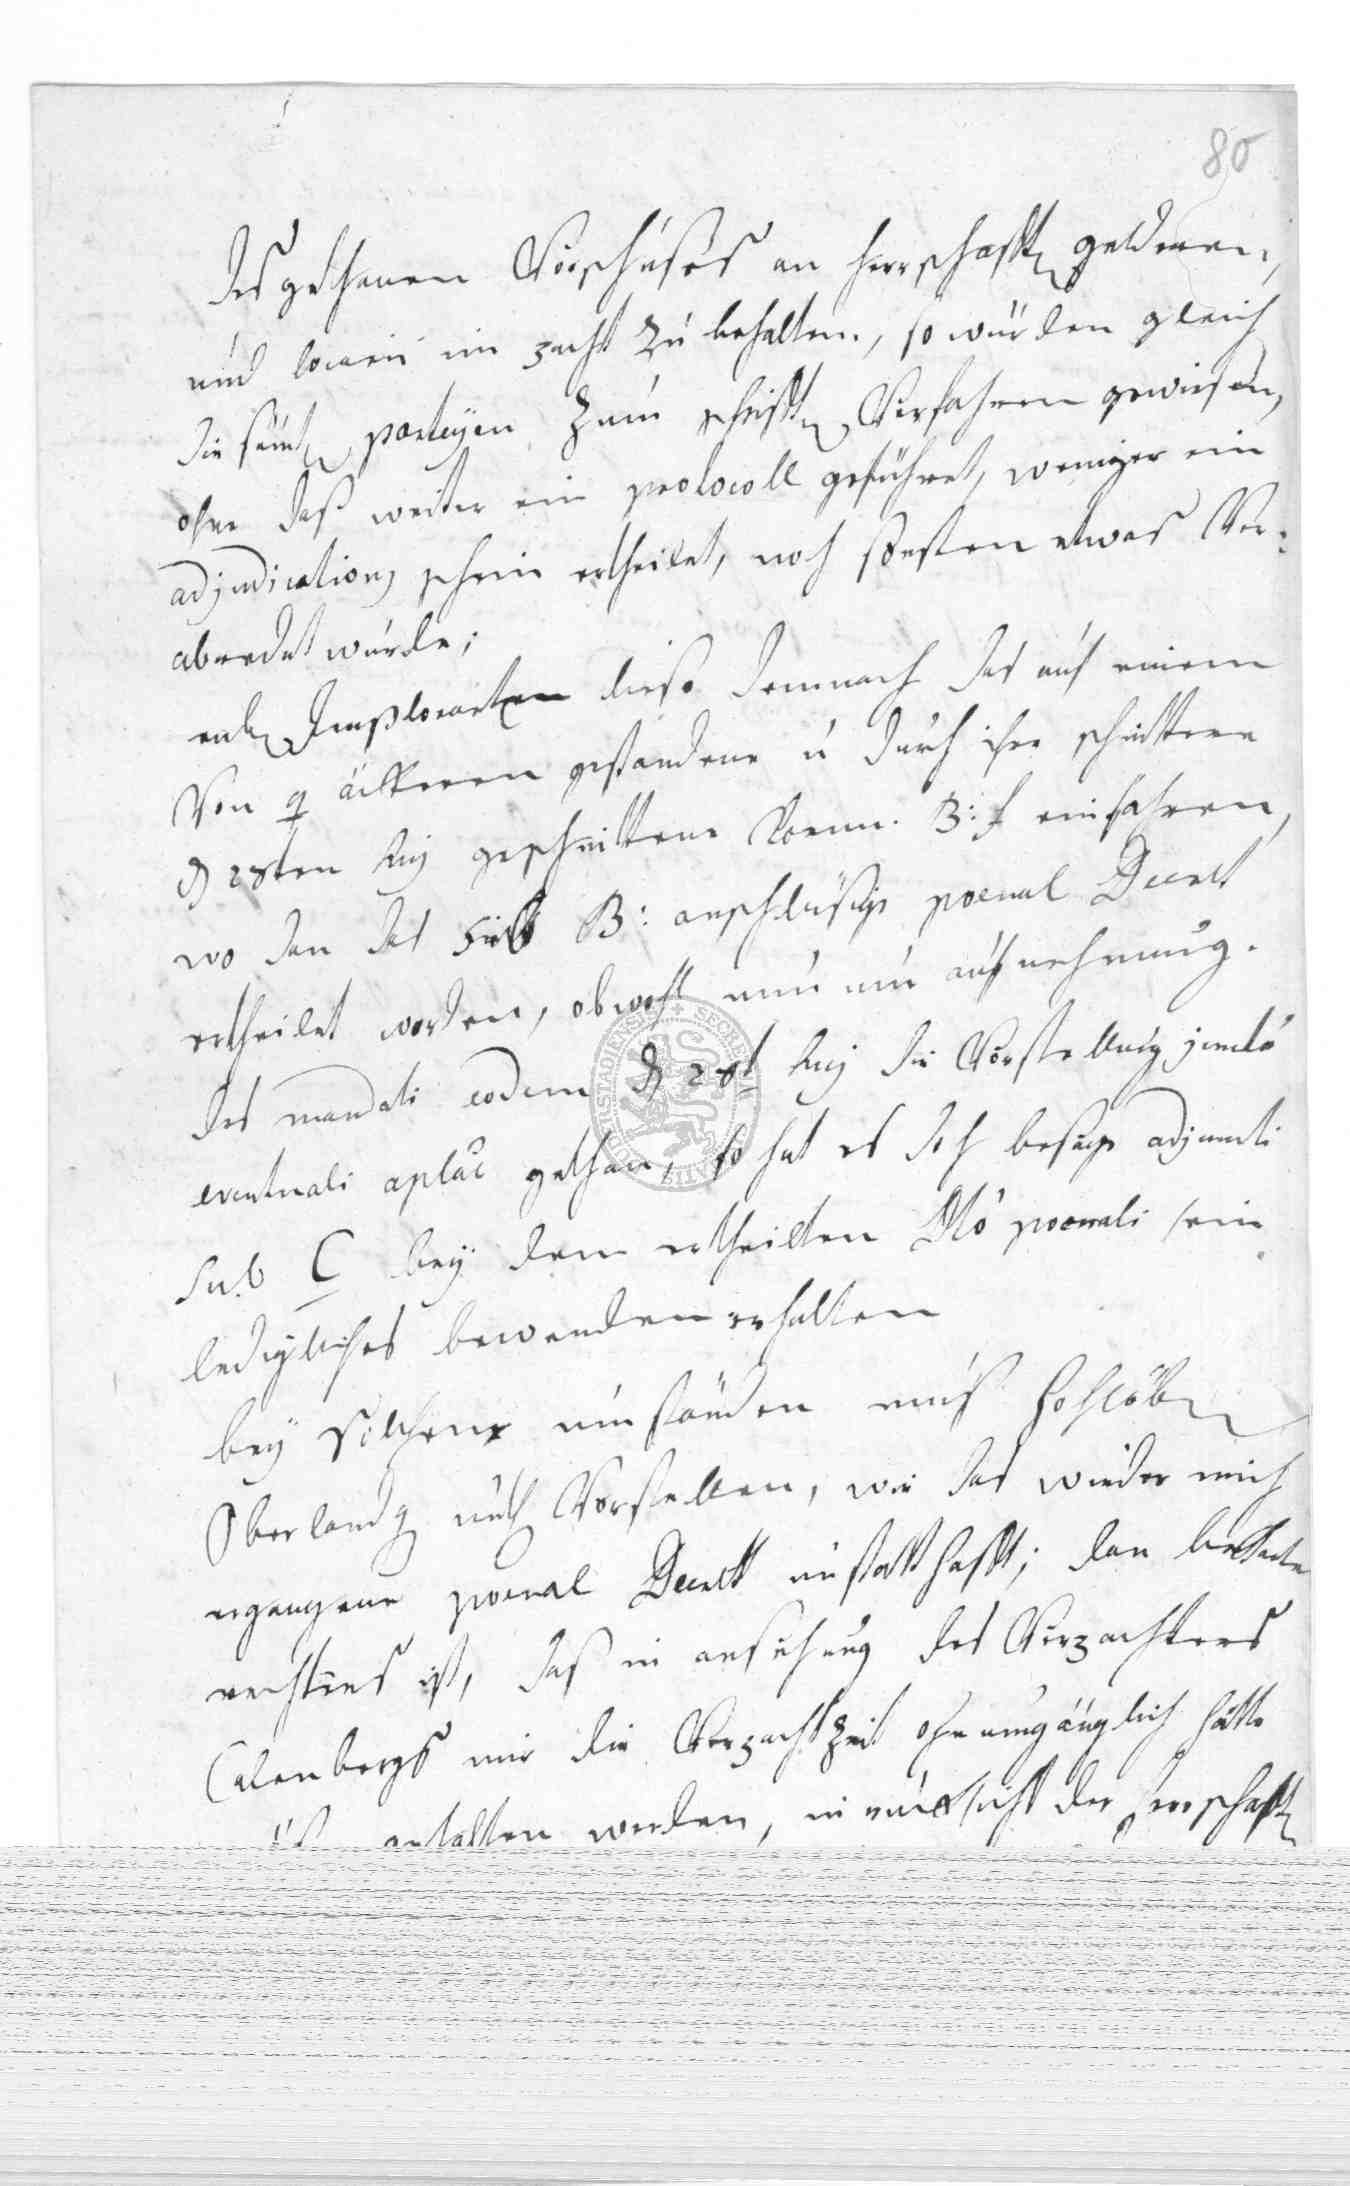 80
des gethanen Vorschußes an herrschaftl geldern,
und locarii in pacht zu behalten, so würden gleich
die sämtl parteyen zum schriftl Verfahren gewiesen,
ohne daß weiter ein protocoll geführet, weniger ein
adjudications schein ertheilet, noch sonsten etwas Ver-
abredet wurde;
Imploranten ließe demnach das auf einem
Von äckeren gestandene u durch ihre schnittere
d 28ten geschnittene Korn einfahren,
wo dan das sub B: anschlüßige poenal Decret
ertheilet worden, obwohl nun um aufnehmung
des mandati eodem d 28t die Vorstellung juncta
eventuali aplae gethan, so hat es doch besage adjuncti
sub C bey dem ertheilten Dto poenali sein
ledigliches bewenden erhalten
bey solchen umständen muß hochlöbl
Oberlandg Vorstellen, wie das wieder mich
ergangene poenal Decret unstatthaft; dan bekanten
rechtens ist, daß in ansehung des Verpachters
Calenbergs mir die Verpacht Zeit ohnumgänglich hätte
gehalten werden, in rücksicht der herrschaftl
SECRET